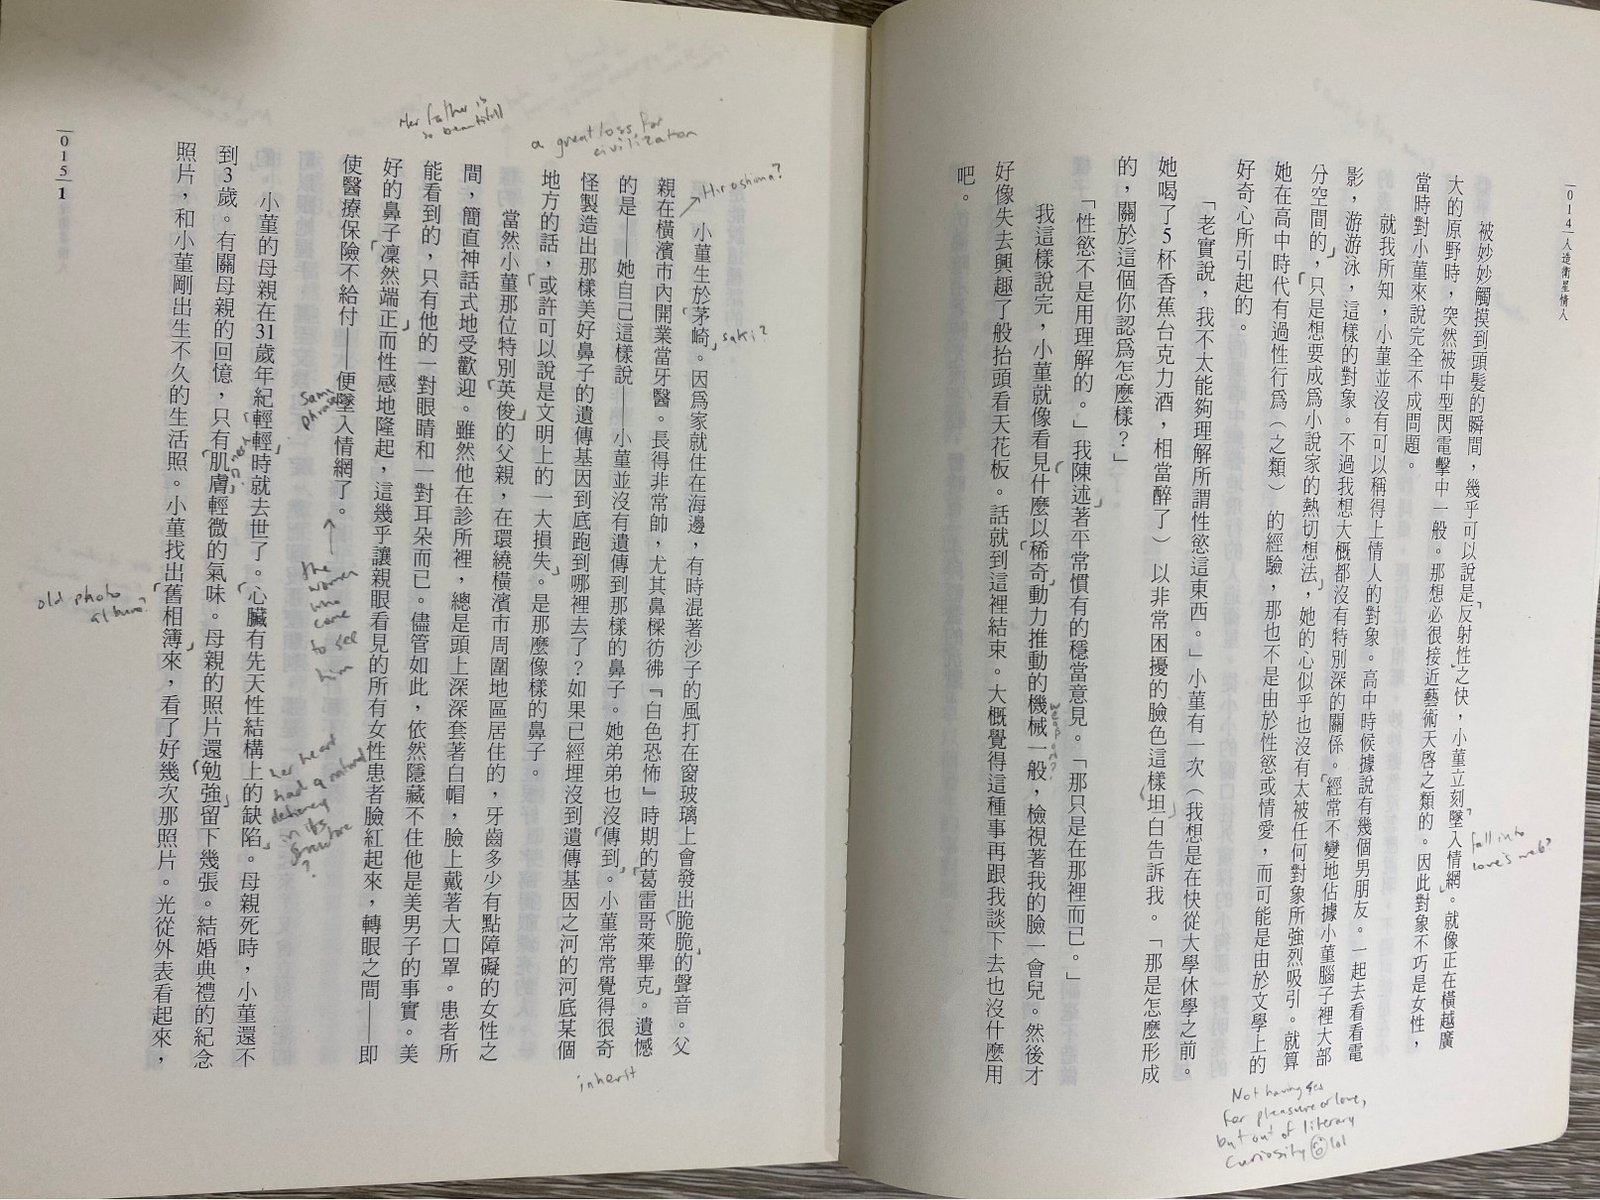 014 人造衛星情人
被妙妙觸摸到頭髮的瞬間，幾乎可以說是反射性之快，小菫立刻墜入情網。就像正在橫越廣
大的原野時，突然被中型閃電擊中一般。那想必很接近藝術天啓之類的。因此對象不巧是女性，
當時對小菫來說完全不成問題。
就我所知，小菫並沒有可以稱得上情人的對象。高中時候據說有幾個男朋友。一起去看看電
影，游游泳，這樣的對象。不過我想大概都沒有特別深的關係。經常不變地佔據小菫腦子裡大部
分空間的，只是想要成爲小說家的熱切想法，她的心似乎也沒有太被任何對象所強烈吸引。就算
她在高中時代有過性行爲（之類）的經驗，那也不是由於性慾或情愛，而可能是由於文學上的
好奇心所引起的。
「老實說，我不太能夠理解所謂性慾這東西。」小菫有一次（我想是在快從大學休學之前。
她喝了5杯香蕉台克力酒，相當醉了）以非常困擾的臉色這樣坦白告訴我。「那是怎麼形成
的，關於這個你認爲怎麼樣？」
「性慾不是用理解的。」我陳述著平常慣有的穩當意見。「那只是在那裡而已。」
我這樣說完，小菫就像看見什麼以稀奇動力推動的機械一般，檢視著我的臉一會兒。然後才
好像失去興趣了般抬頭看天花板。話就到這裡結束。大概覺得這種事再跟我談下去也沒什麼用
吧。
fall into
love's web?
weapon?
Not having sex
for pleasure or love,
but out of literary
curiosity lol
小菫生於茅崎。因爲家就住在海邊，有時混著沙子的風打在窗玻璃上會發出脆脆的聲音。父
親在橫濱市內開業當牙醫。長得非常帥，尤其鼻樑彷彿『白色恐怖』時期的葛雷哥萊畢克。遺憾
的是——她自己這樣說——小菫並沒有遺傳到那樣的鼻子。她弟弟也沒傳到。小菫常常覺得很奇
怪製造出那樣美好鼻子的遺傳基因到底跑到哪裡去了？如果已經埋沒到遺傳基因之河的河底某個
地方的話，或許可以說是文明上的一大損失。是那麼像樣的鼻子。
當然小菫那位特別英俊的父親，在環繞橫濱市周圍地區居住的，牙齒多少有點障礙的女性之
間，簡直神話式地受歡迎。雖然他在診所裡，總是頭上深深套著白帽，臉上戴著大口罩。患者所
能看到的，只有他的一對眼睛和一對耳朵而已。儘管如此，依然隱藏不住他是美男子的事實。美
好的鼻子凜然端正而性感地隆起，這幾乎讓親眼看見的所有女性患者臉紅起來，轉眼之間——即
使醫療保險不給付——便墜入情網了。
小菫的母親在31歲年紀輕輕時就去世了。心臟有先天性結構上的缺陷。母親死時，小菫還不
到3歲。有關母親的回憶，只有肌膚輕微的氣味。母親的照片還勉強留下幾張。結婚典禮的紀念
照片，和小菫剛出生不久的生活照。小菫找出舊相簿來，看了好幾次那照片。光從外表看起來，
015 1
Hiroshima?
saki?
a great loss for
civilization
Her father is
so beautiful!
inherit
same
phrase
the women
who come
to see
him
her heart
had a natural
deficiency
in its
structure
?
old photo
album?